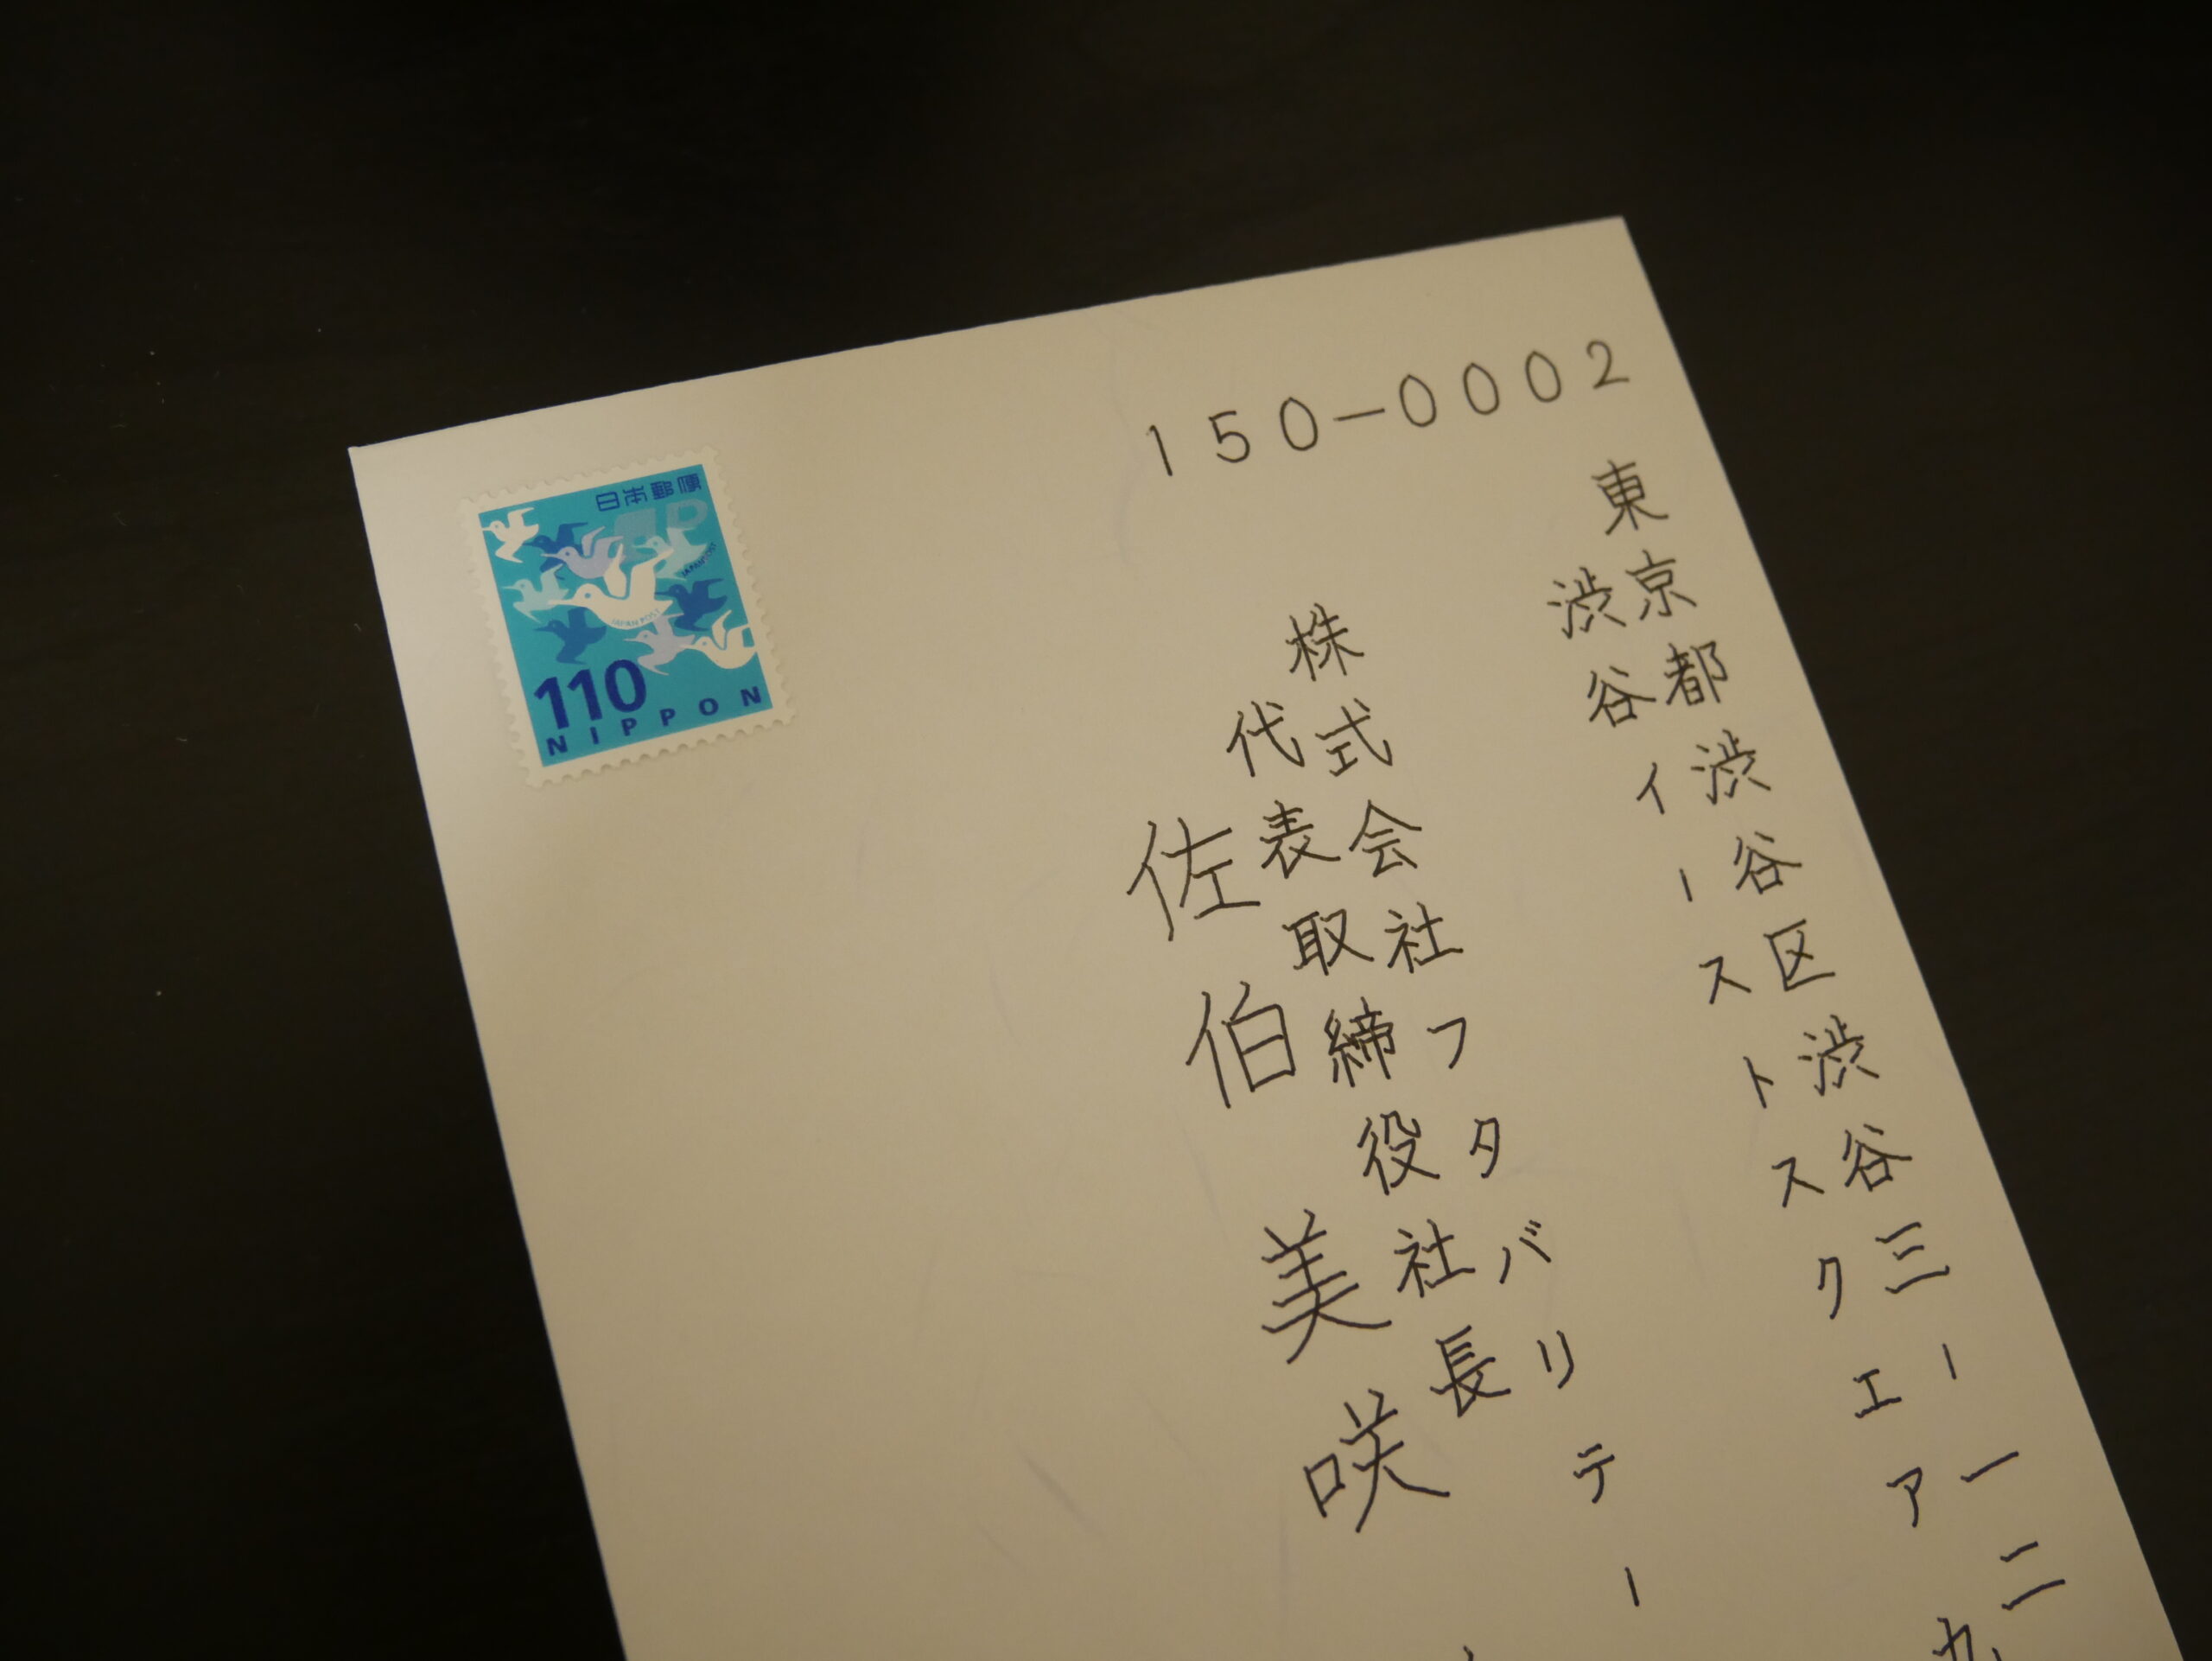 150-0002
東京都渋谷区渋谷三ー一二
渋谷イーストスクエア
株式会社フタバリテー
代表取締役社長
佐伯美咲
日本郵便
JAPAN POST
JAPAN POST
110
NIPPON